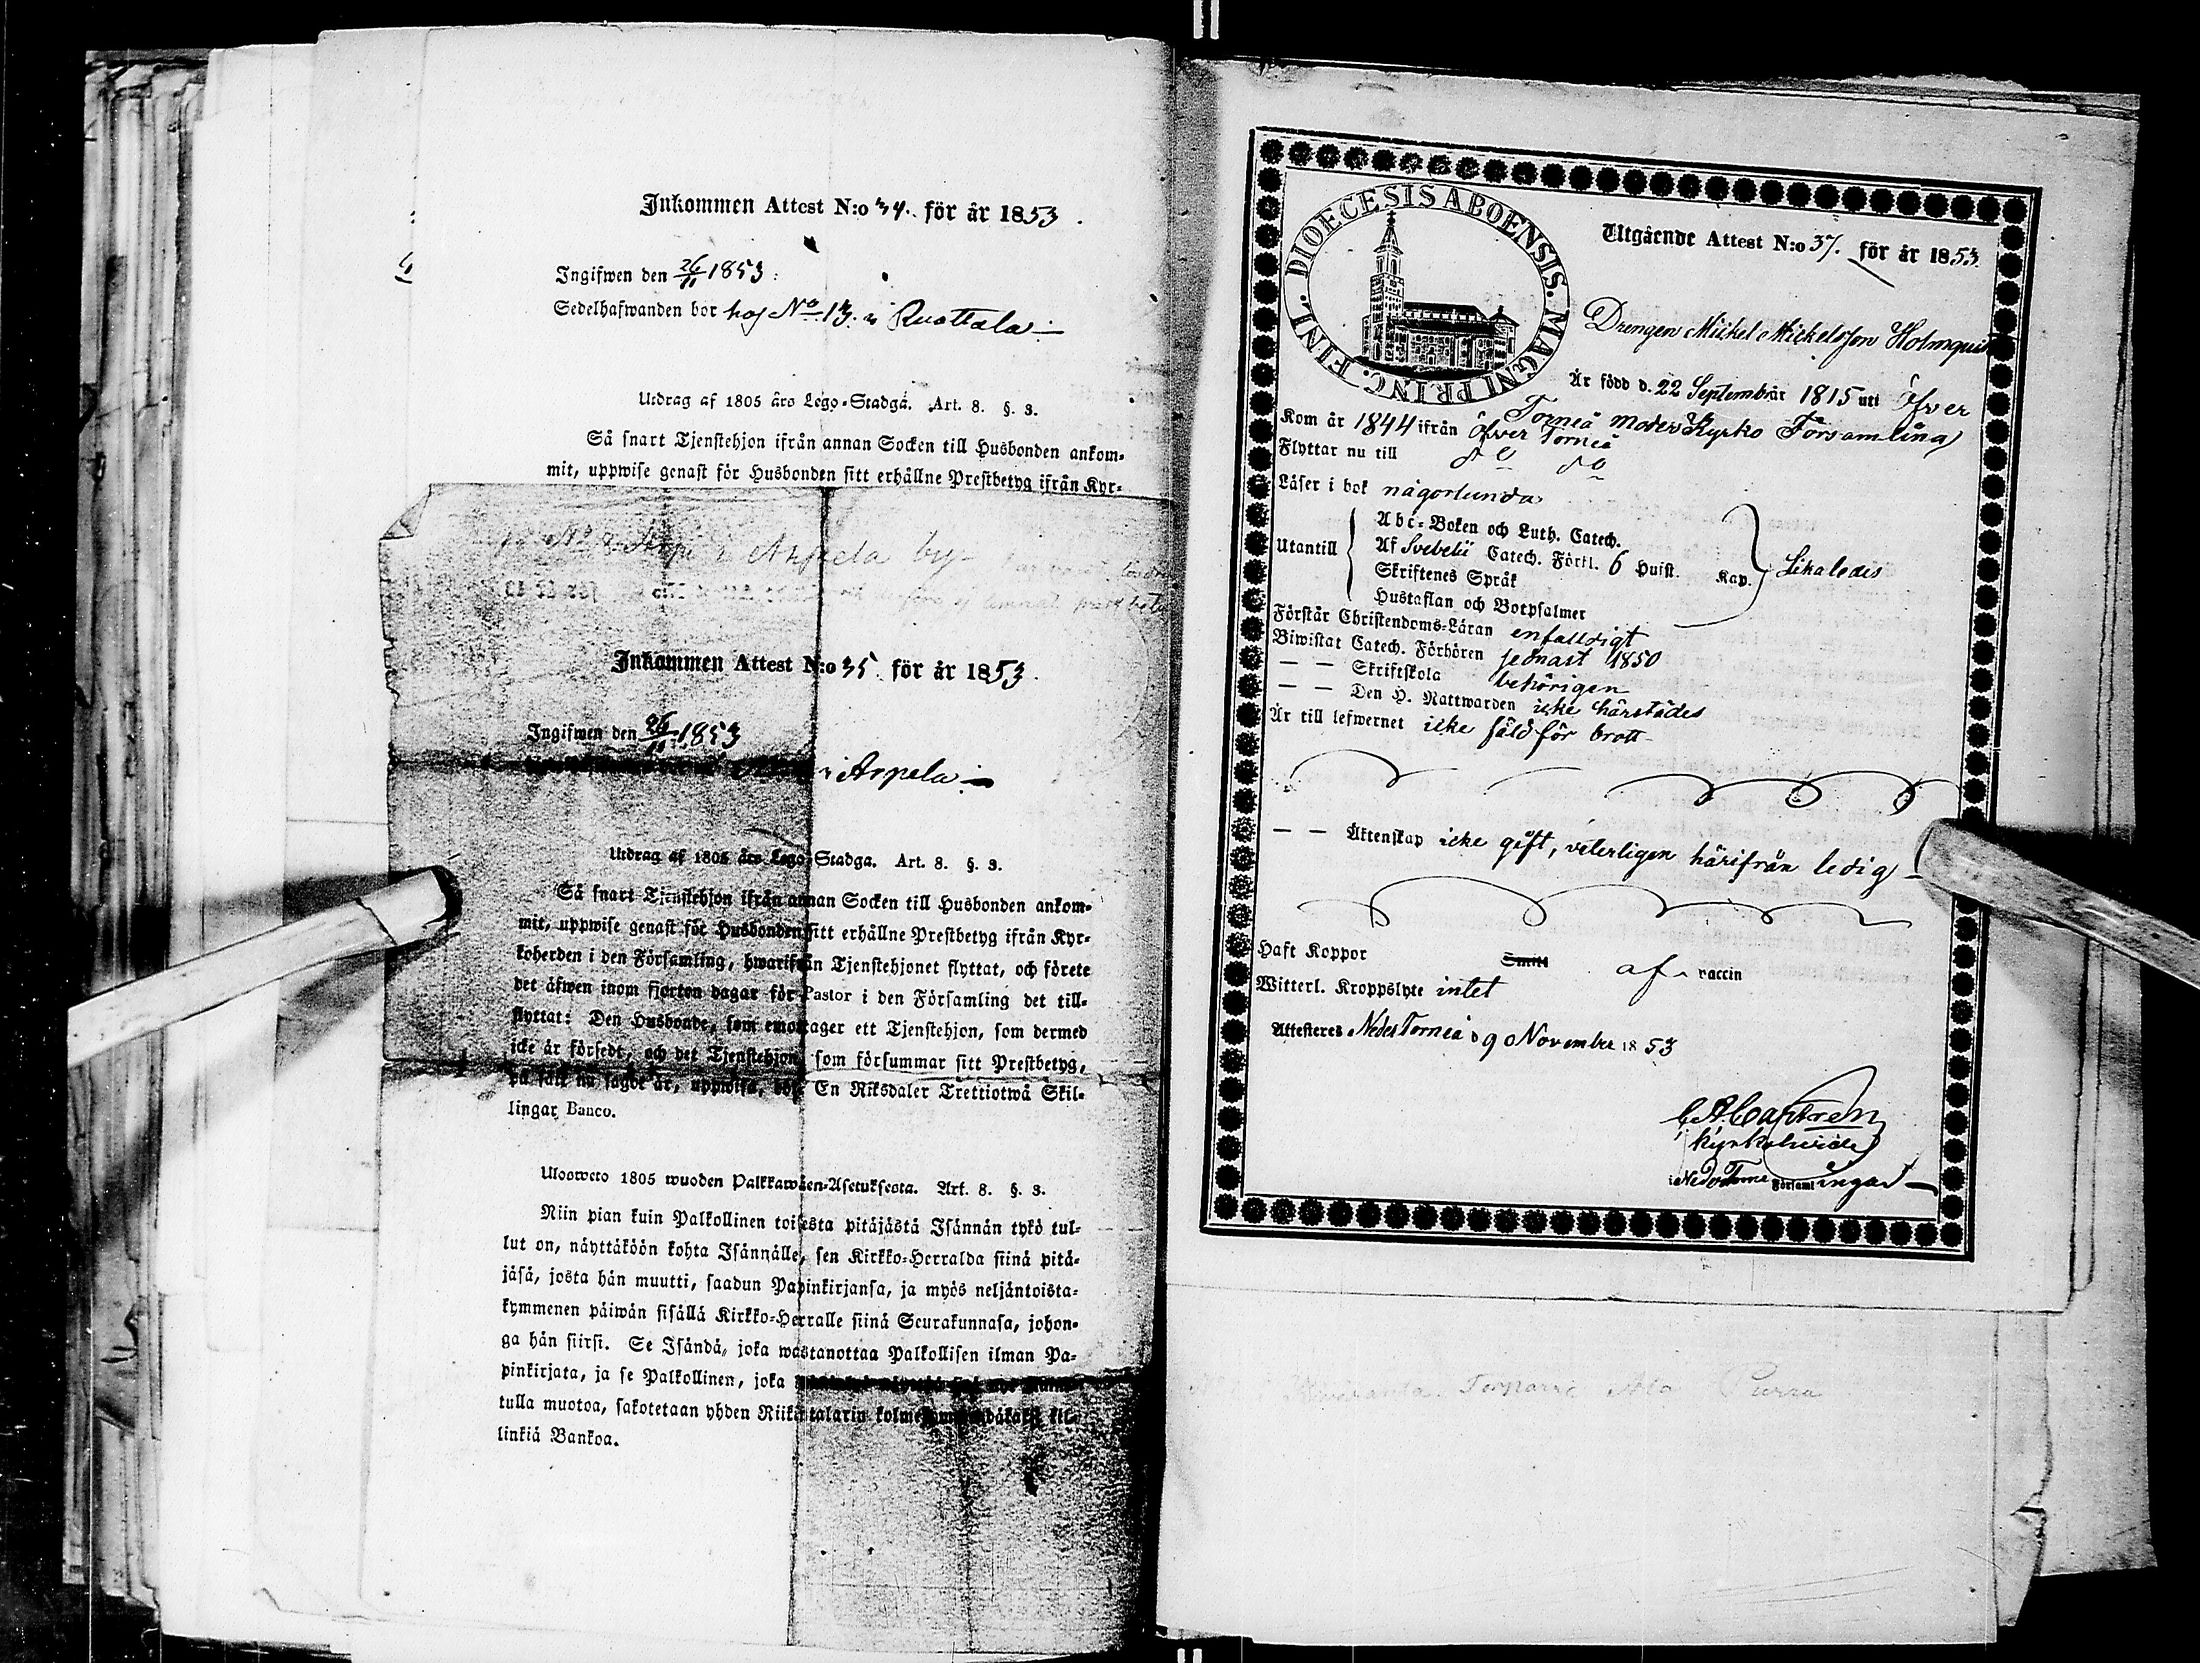 Inkommen Attest N:o 34. för år 1853.
Ingifwen den 26/11 1853.
Sedelhafwanden bor hos No 13. i Ruottala
Utdrag af 1805 års Lego-Stadga. Art. 8. §. 3.
Så snart Tjenstehjon ifrån annan Socken till Husbonden ankom-
mit, uppwise genast för Husbonden sitt erhållne Prestbetyg ifrån Kyr-
Arpela by
Inkommen Attest N:o 35 för år 1853.
Ingifwen den 26/11 1853
i Arpela
Utdrag af 1805 års Lego-Stadga. Art. 8. §. 3.
Så snart Tjenstehjon ifrån annan Socken till Husbonden ankom-
mit, uppwise genast för Husbonden sitt erhållne Prestbetyg ifrån Kyr-
koherden i den Församling, hwarifrån Tjenstehjonet flyttat, och förete
det äfwen inom fjorton dagar för Pastor i den Församling det till-
flyttat: Den Husbonde, som emottager ett Tjenstehjon, som dermed
icke är försedt, och det Tjenstehjon, som försummar sitt Prestbetyg,
på sätt nu sagdt är, uppwisa, böte En Riksdaler Trettiotwå Skil-
lingar Banco.
Ulosweto 1805 wuoden Palkkawäen-Asetuksesta. Art. 8. §. 3.
Niin pian kuin Palkollinen toisesta pitäjästä Isännän tykö tul-
lut on, näyttäköön kohta Isännälle, sen Kirkko-Herralda siinä pitä-
jäsä, josta hän muutti, saadun Papinkirjansa, ja myös neljäntoista-
kymmenen päiwän sisällä Kirkko-Herralle siinä Seurakunnasa, johon-
ga hän siirsi. Se Isändä, joka wastanottaa Palkollisen ilman Pa-
pinkirjata, ja se Palkollinen, joka
tulla muotoa, sakotetaan yhden Riikintalarin kolmekymmendäkaksi kil-
linkiä Bankoa.
DIOECESIS ABOENSIS. MAGNI PRINC. FINL.
Utgående Attest N:o 37. för år 1853.
Drengen Mickel Mickelsson Holmquist
Är född d. 22 September år 1815 uti Öfver
Torneå moder Kyrko Församling
Kom år 1844 ifrån Öfver Torneå
Flyttar nu till do do
Läser i bok någorlunda
Utantill
Abc-Boken och Luth. Catech.
Af Svebelii Catech. Förkl. 6 Hufst. Kap.
Skriftenes Språk
Hustaflan och Botpsalmer
Likaledes
Förstår Christendoms-Läran enfalldigt
Biwistat Catech. Förhören sednast 1850
— — Skriftskola behörigen
— — Den H. Nattwarden icke härstädes
Är till lefwernet icke fäld för brott
— — Äktenskap icke gift, veterligen härifrån ledig
Haft Koppor Smitt af vaccin
Witterl. Kroppslyte intet
Attesteres Neder Torneå d 9 November 1853
C A Castrén
Kyrkoherde
i Neder Torneå Församlingar